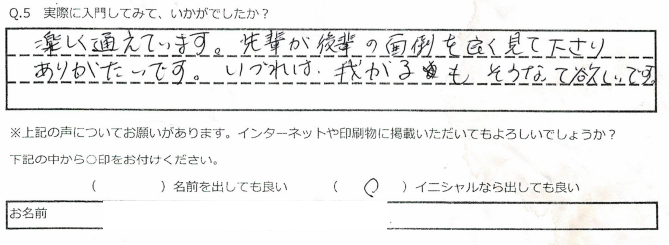 Q.5 実際に入門してみて、いかがでしたか？
楽しく通えています。先輩が後輩の面倒を良く見て下さり
ありがたいです。いづれは、我が子もそうなって欲しいです
※上記の声についてお願いがあります。インターネットや印刷物に掲載いただいてもよろしいでしょうか？
下記の中から○印をお付けください。
（　　　）名前を出しても良い　（　○　）イニシャルなら出しても良い
お名前